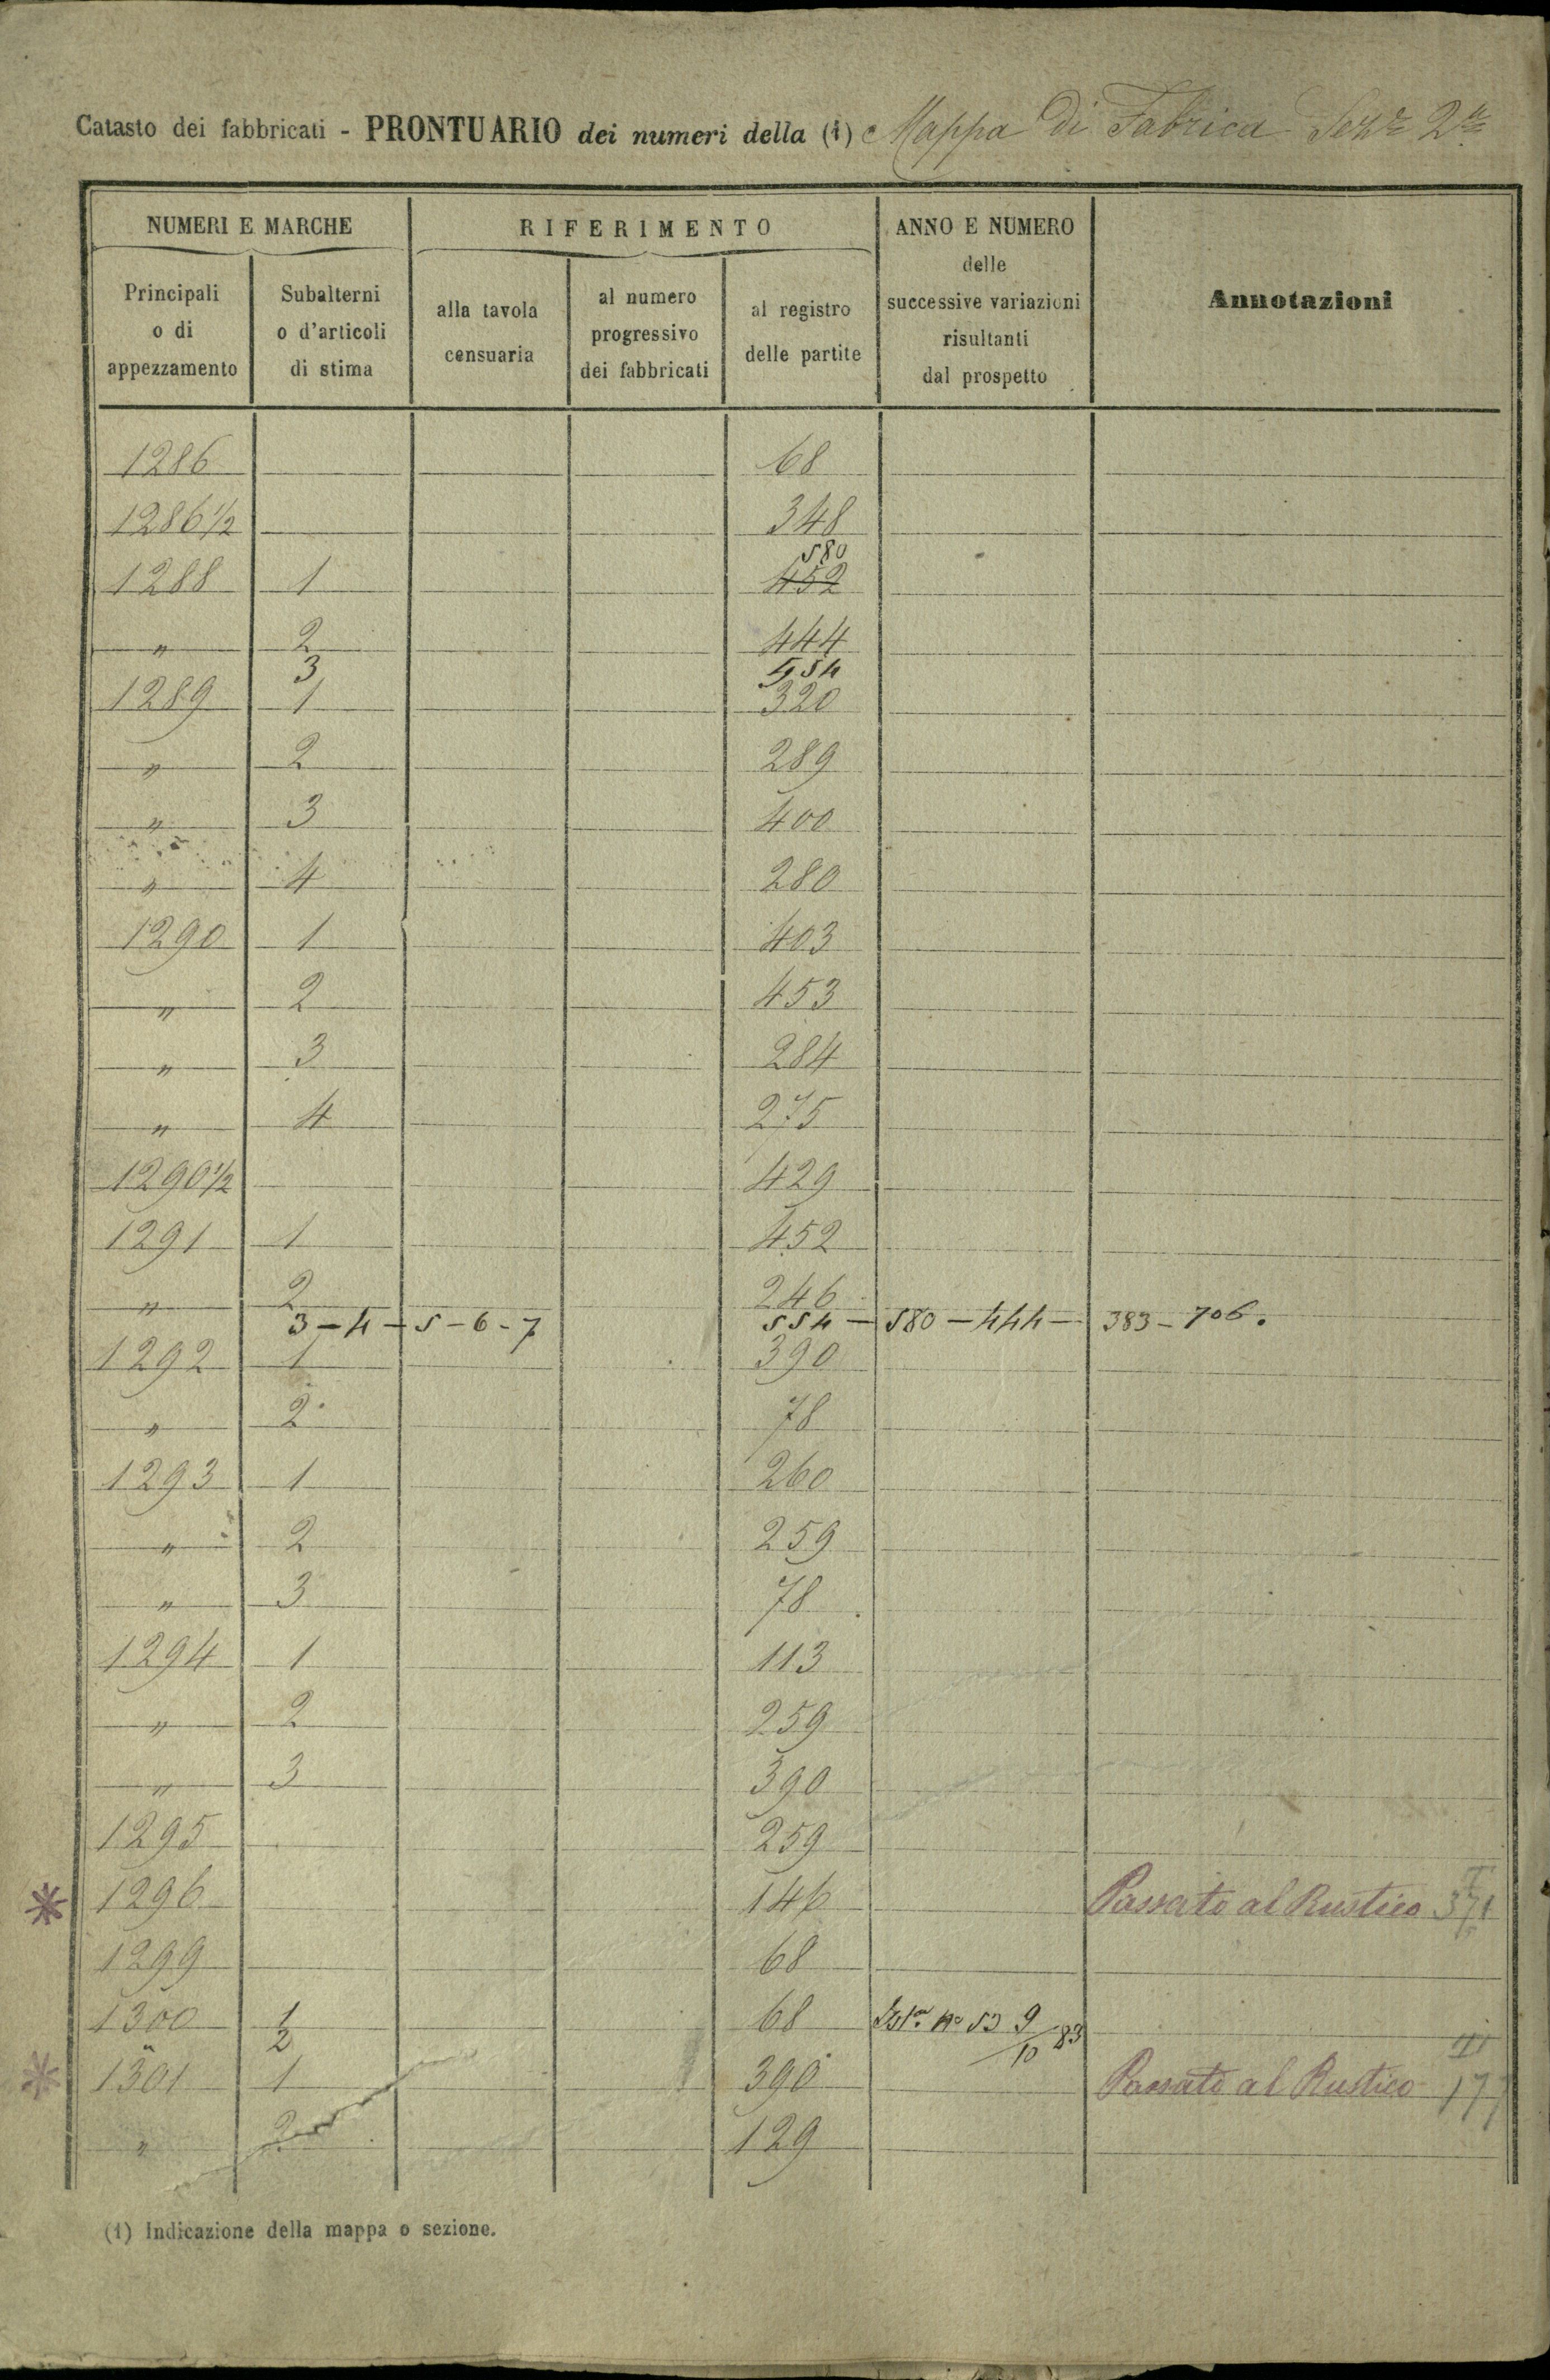 Catasto dei fabbricati - PRONTUARIO dei numeri della (1) Mappa di Fabrica Sez.e 2da
NUMERI E MARCHE RIFERIMENTO ANNO E NUMERO delle successive variazioni risultanti dal prospetto Annotazioni
Principali o di appezzamento Subalterni o d'articoli di stima alla tavola censuaria al numero progressivo dei fabbricati al registro delle partite
1286 68
1286 1/2 348
580
1288 1 452
" 2 444
3 454
1289 1 320
" 2 289
" 3 400
" 4 280
1290 1 403
" 2 453
" 3 284
" 4 275
1290 1/2 429
1291 1 452
" 2 246
3-4-5-6-7 554-580-444-383-706.
1292 1 390
" 2 78
1293 1 260
" 2 259
" 3 78
1294 1 113
" 2 259
" 3 390
1295 259
* 1296 146 Passato al Rustico I 371
1299 68
1300 1 68 n° 53 9/10 83
" 2
* 1301 1 390 Passato al Rustico II 177
" 2 129
(1) Indicazione della mappa o sezione.